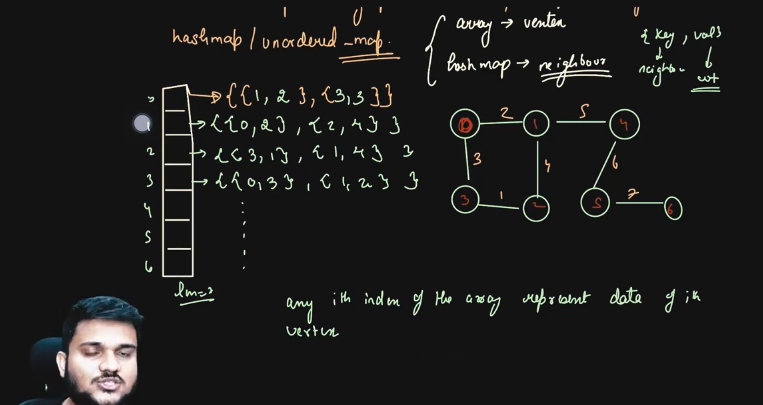 hashmap / unordered_map.
array → vertex
hashmap → neighbour
{ key, val }
neighbour
wt
0 → {{1, 2}, {3, 3}}
1 → {{0, 2}, {2, 4} }
2 → {{3, 1}, {1, 4} }
3 → {{0, 3}, {1, 2} }
4
5
6
0 2 1 5 4
3 4 6
3 1 2 5 7 6
any ith index of the array represent data of ith
vertex